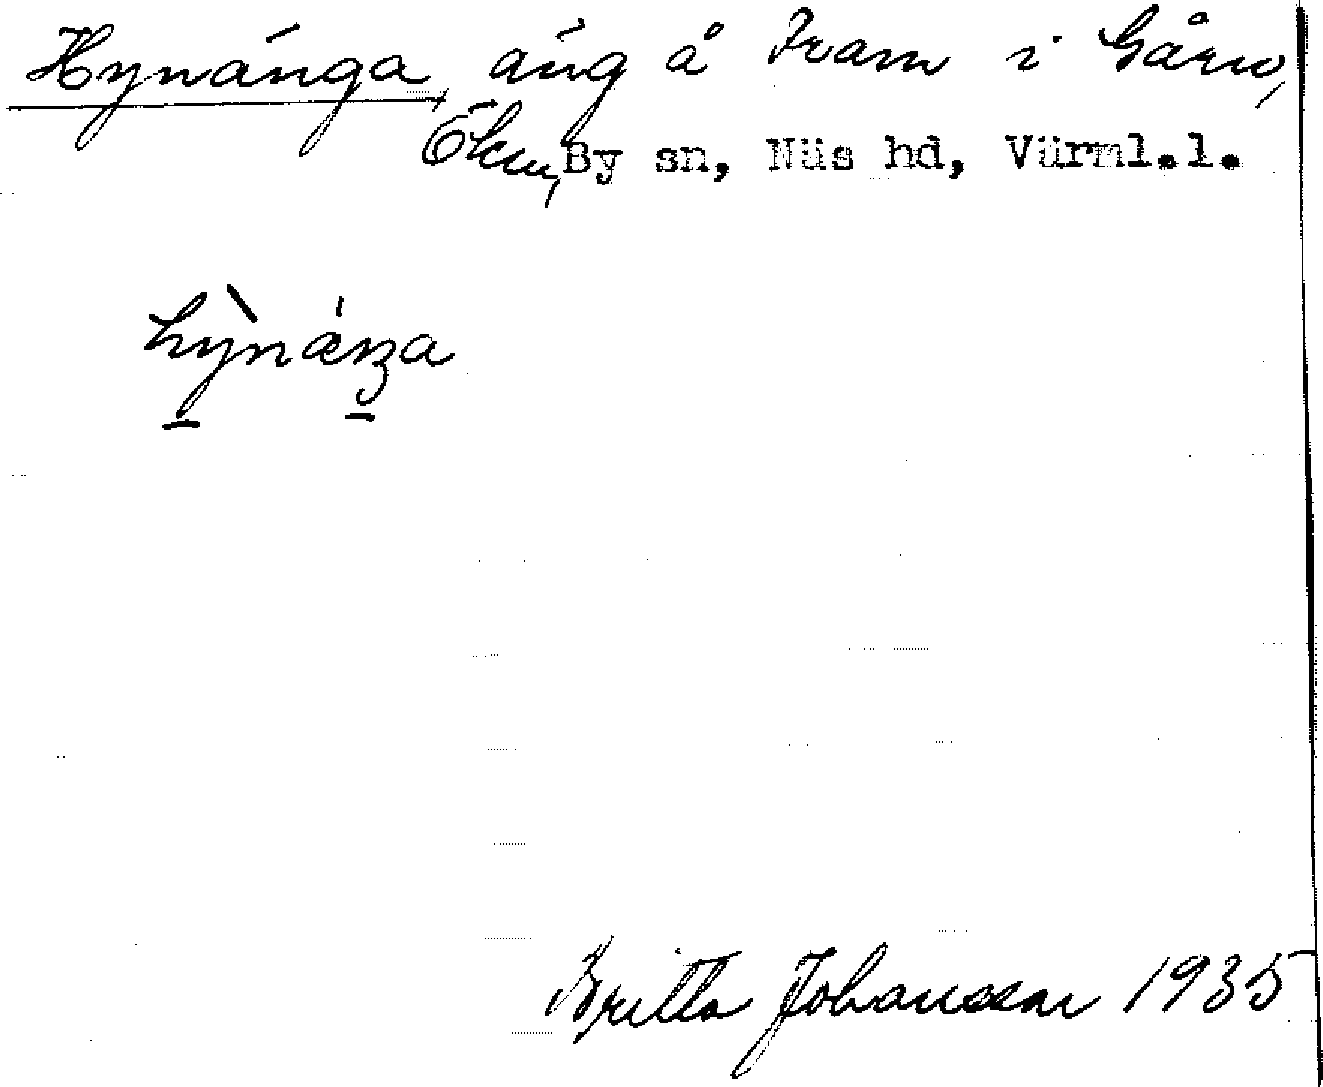 Hynänga, äng å Fram i Gårn,
Öln, By sn, Näs hd, Värml.l.
hỳnäŋa
Britta Johansson 1935